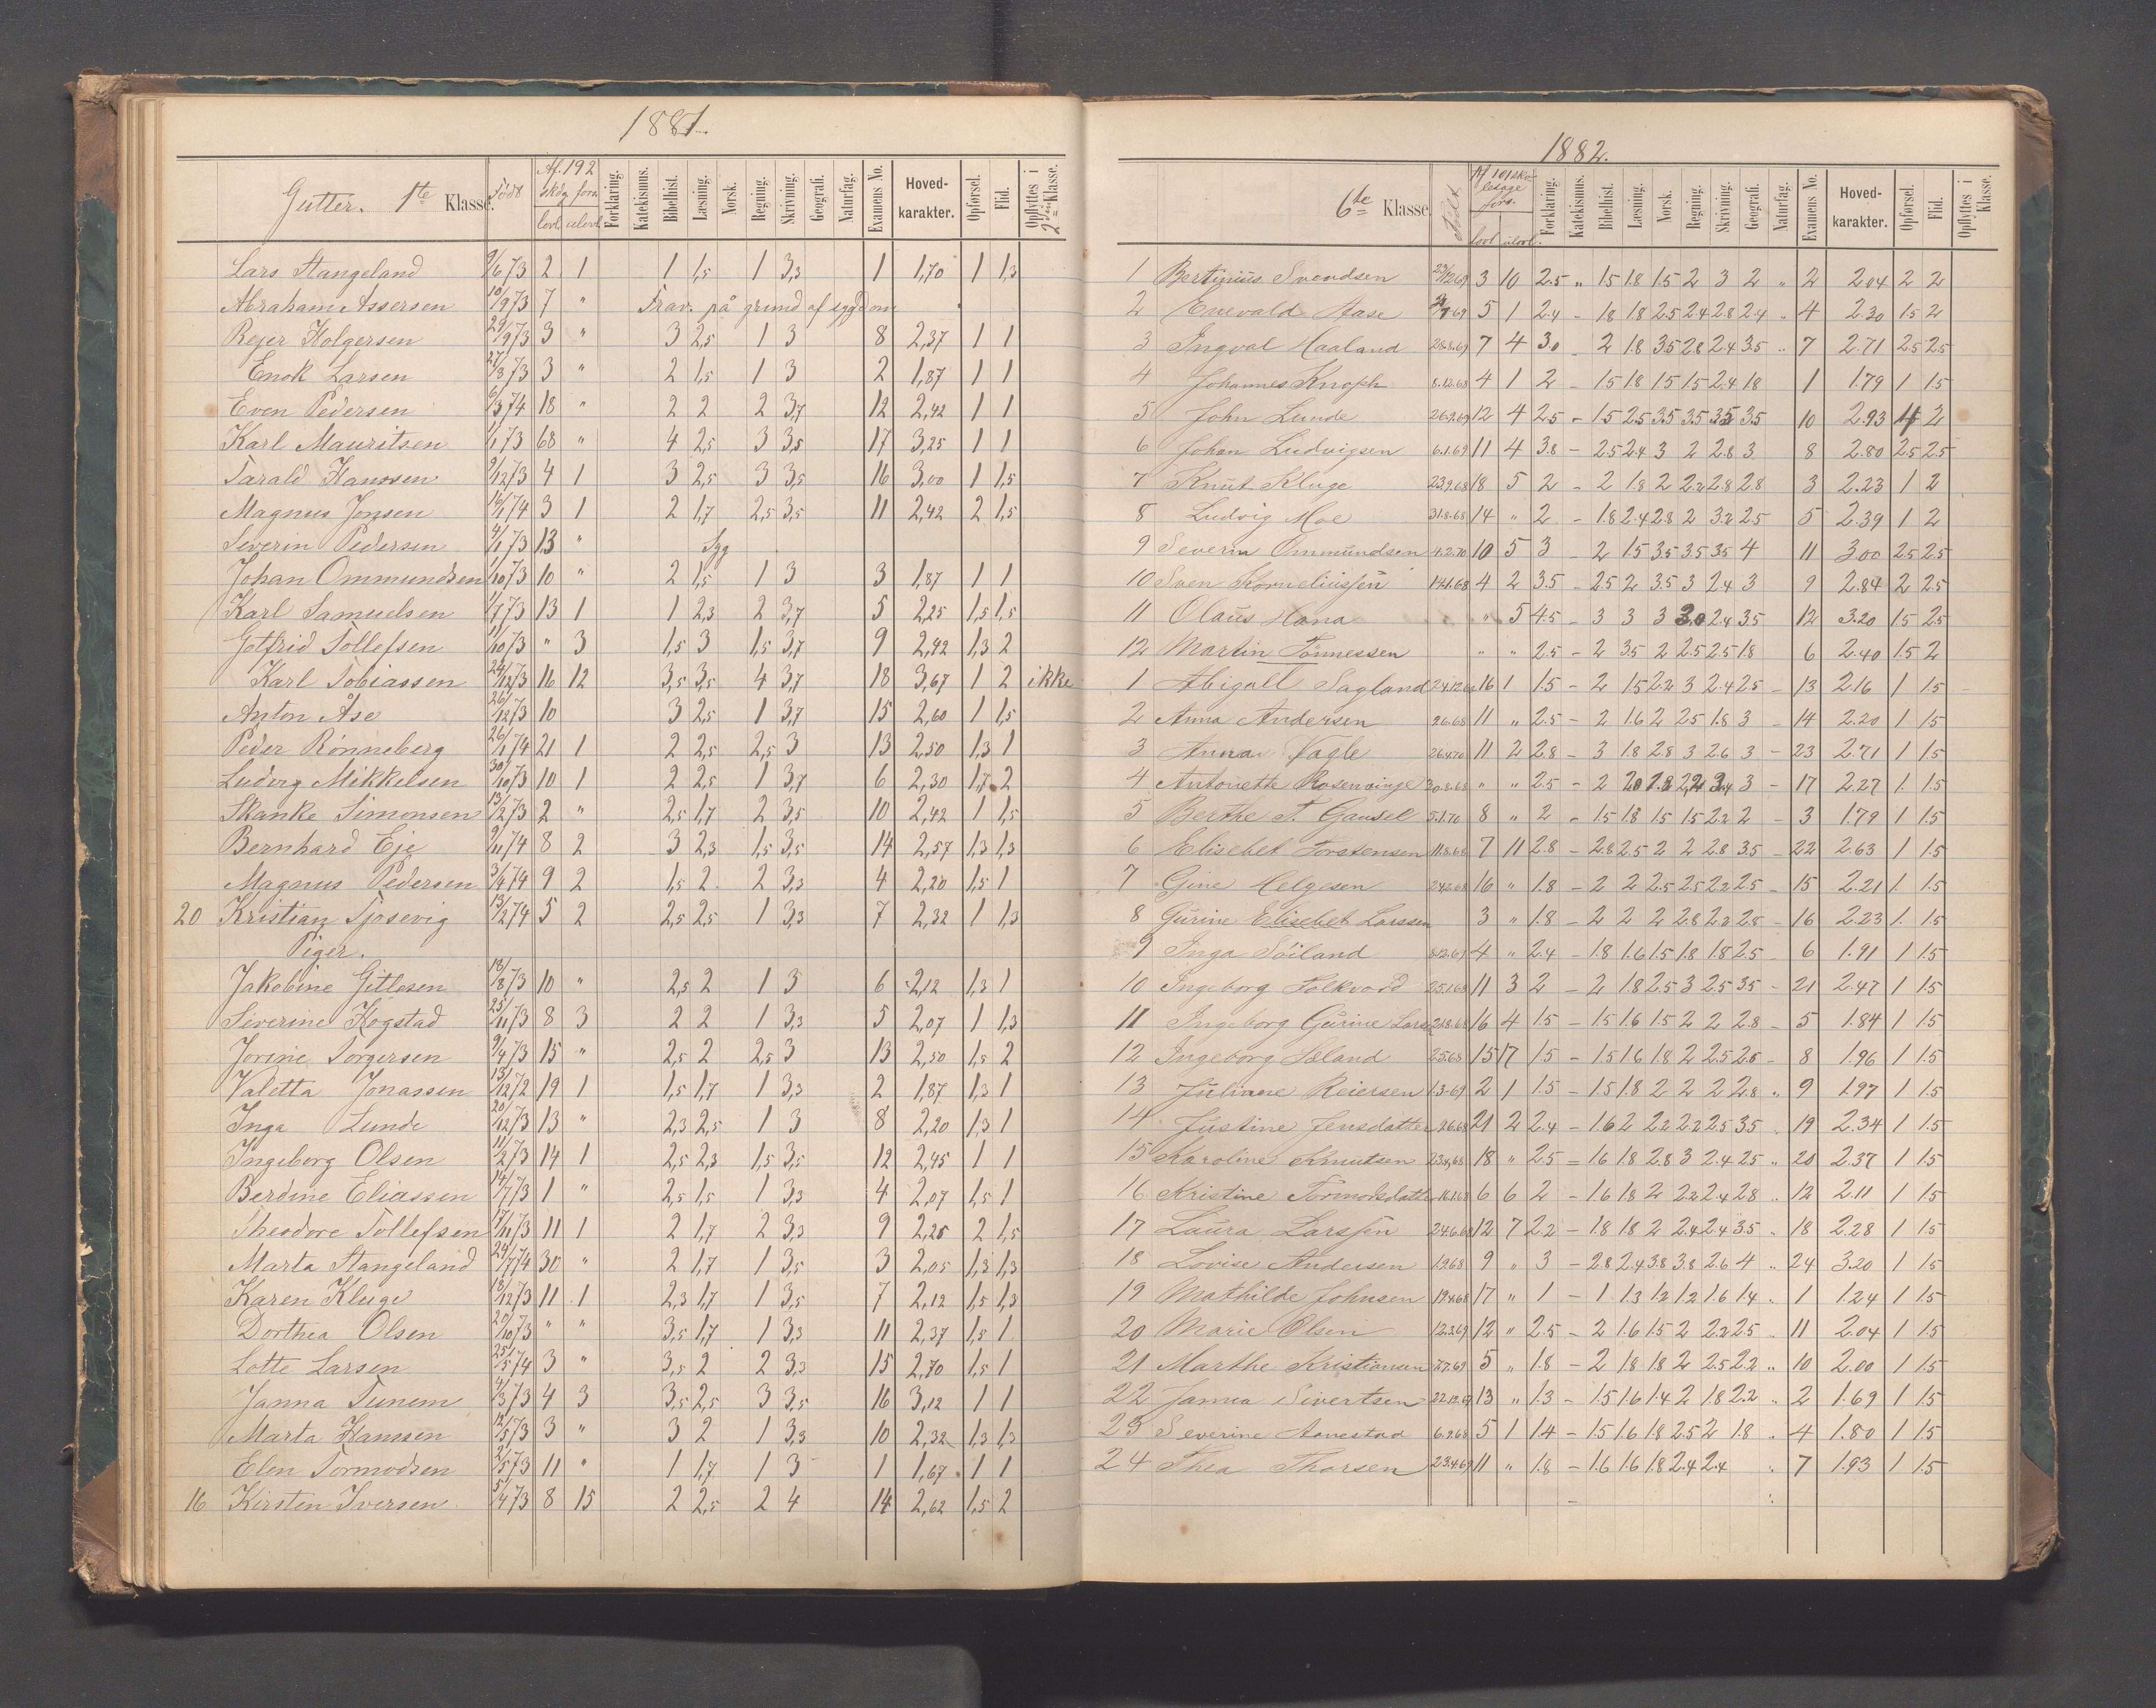 1881.
Gutter. 1ste Klasse. Født Af 192 skdg. fors. lovl. ulovl. Forklaring. Katekismus. Bibelhist. Læsning. Norsk. Regning. Skrivning. Geografi. Naturfag. Examens No. Hoved-karakter. Opførsel. Flid. Opflyttes i 2den Klasse.
Lars Stangeland 9/6 73 2 1 1 1,5 1 3,3 1 1,70 1 1,3
Abraham Assersen 10/9 73 7 " Frav. på grund af sygdom
Rejer Holgersen 29/9 73 3 " 3 2,5 1 3 8 2,37 1 1
Enok Larsen 27/3 73 3 " 2 1,5 1 3 2 1,87 1 1
Even Pedersen 6/3 74 18 " 2 2 2 3,7 12 2,42 1 1
Karl Mauritsen 1/1 73 68 " 4 2,5 3 3,5 17 3,25 1 1
Tarald Hanssen 9/12 73 4 1 3 2,5 3 3,5 16 3,00 1 1,5
Magnus Jonsen 16/1 74 3 1 2 1,7 2,5 3,5 11 2,42 2 1,5
Severin Pedersen 4/1 73 13 " Syg
Johan Ommundsen 1/10 73 10 " 2 1,5 1 3 3 1,87 1 1
Karl Samuelsen 1/7 73 13 1 1 2,3 2 3,7 5 2,25 1,5 1,5
Gotfrid Tollefsen 11/10 73 " 3 1,5 3 1,5 3,7 9 2,42 1,3 2
Karl Tobiassen 24/12 73 16 12 3,5 3,5 4 3,7 18 3,67 1 2 ikke
Anton Ase 26/12 73 10 3 2,5 1 3,7 15 2,60 1 1,5
Peder Rønneberg 26/1 74 21 1 2 2,5 2,5 3 13 2,50 1,3 1
Ludvig Mikkelsen 30/10 73 10 1 2 2,5 1 3,7 6 2,30 1,7 2
Skanke Simonsen 13/2 73 2 " 2,5 1,7 2 3,5 10 2,42 1 1,5
Bernhard Eje 9/11 74 8 2 3 2,3 1,5 3,5 14 2,57 1,3 1,3
Magnus Pedersen 3/4 74 9 2 1,5 2 2 3,3 4 2,20 1,5 1
20 Kristian Tjosevig 13/2 74 5 2 2,5 2,5 1 3,3 7 2,32 1 1,3
Piger.
Jakobine Gitlesen 18/8 73 10 " 2,5 2 1 3 6 2,12 1,3 1
Siverine Høgstad 25/11 73 8 3 2 2 1 3,3 5 2,07 1 1,3
Jorine Torgersen 9/4 73 15 " 2,5 2 2,5 3 13 2,50 1,5 2
Valetta Jonassen 13/12 72 19 1 1,5 1,7 1 3,3 2 1,87 1,3 1
Inga Lunde 20/12 73 13 " 2,3 2,5 1 3 8 2,20 1,3 1
Ingeborg Olsen 11/2 73 14 1 2,5 2,3 1,5 3,5 12 2,45 1 1
Berdine Eliassen 14/7 73 1 " 2,5 1,5 1 3,3 4 2,07 1,5 1
Theodore Tollefsen 17/11 73 11 1 2 1,7 2 3,3 9 2,25 2 1,5
Marta Stangeland 29/7 74 30 " 2 1,7 1 3,5 3 2,05 1,3 1,3
Karen Kluge 13/12 73 11 1 2,3 1,7 1 3,5 7 2,12 1,5 1,3
Dorthea Olsen 20/10 73 " " 3,5 1,7 1 3,3 11 2,37 1,5 1
Lotte Larsen 25/5 74 3 " 3,5 2 2 3,3 15 2,70 1,5 1
Janna Tunem 4/3 73 4 3 3,5 2,5 3 3,5 16 3,12 1 1
Marta Hanssen 12/5 73 3 " 3 2 1 3,3 10 2,32 1,3 1,3
Elen Tormodsen 2/5 73 11 " 1 1,7 1 3 1 1,67 1 1
16 Kirsten Iversen 5/4 73 8 15 2 2,5 2 4 14 2,62 1,5 2
1882.
6te Klasse. Født Af 101 skoledage fors. lovl ulovl. Forklaring. Katekismus. Bibelhist. Læsning. Norsk. Regning. Skrivning. Geografi. Naturfag. Examens No. Hoved-karakter. Opførsel. Flid. Opflyttes i Klasse.
1 Bertinius Svendsen 3 10 2.5 " 1.5 1.8 1.5 2 3 2 " 2 2.04 2 2
2 Enevald Aase 5 1 2.4 - 1.8 1.8 2.5 2.4 2.8 2.4 " 4 2.30 1.5 2
3 Ingval Haaland 28.8.69 7 4 3.0 - 2 1.8 3.5 2.8 2.4 3.5 " 7 2.71 2.5 2.5
4 Johannes Knoph 8.12.68 4 1 2 - 1.5 1.8 1.5 1.5 2.4 1.8 1 1.79 1 1.5
5 John Lunde 26.2.69 12 4 2.5 - 1.5 2.5 3.5 3.5 3.5 3.5 10 2.93 2
6 Johan Ludvigsen 6.1.69 11 4 3.8 - 2.5 2.4 3 2 2.8 3 8 2.80 2.5 2.5
7 Knut Kluge 23.9.68 18 5 2 - 2 1.8 2 2.2 2.8 2.8 3 2.23 1 2
8 Ludvig Moe 31.8.68 14 " 2 - 1.8 2.4 2.8 2 3.2 2.5 5 2.39 1 2
9 Severin Ommundsen 4.2.70 10 5 3 - 2 1.5 3.5 3.5 3.5 4 11 3.00 2.5 2.5
10 Sven Korneliussen 14.1.68 4 2 3.5 - 2.5 2 3.5 3 2.4 3 9 2.84 2 2.5
11 Olaus Hana " 5 4.5 - 3 3 3 3.0 2.4 3.5 12 3.20 1.5 2.5
12 Martin Tønnessen " " 2.5 - 2 3.5 2 2.5 2.5 1.8 6 2.40 1.5 2
1 Abigall Sagland 24.12.68 16 1 1.5 - 2 1.5 2.2 3 2.4 2.5 - 13 2.16 1 1.5
2 Anna Andersen 2.6.68 11 " 2.5 - 2 1.6 2 2.5 1.8 3 - 14 2.20 1 1.5
3 Anna Vagle 26.4.70 11 2 2.8 - 3 1.8 2.8 3 2.6 3 - 23 2.71 1 1.5
4 Antonette Rosenvinge 30.8.68 " " 2.5 - 2 2.0 1.8 2.4 3 - 17 2.27 1. 1.5
5 Berthe T. Gausel 5.1.70 8 " 2 - 1.5 1.8 1.5 1.5 2.2 2 - 3 1.79 1 1.5
6 Elisebet Torstensen 11.8.68 7 11 2.8 - 2.8 2.5 2 2 2.8 3.5 - 22 2.63 1 1.5
7 Gine Helgesen 16 " 1.8 - 2 2 2.5 2.5 2.2 2.5 - 15 2.21 1. 1.5
8 Gurine Elisebet Larssen 3 " 1.8 - 2 2 2 2.8 2.2 2.8 - 16 2.23 1. 1.5
9 Inga Söiland 8.12.69 4 " 2.4 - 1.8 1.6 1.5 1.8 1.8 2.5 - 6 1.91 1 1.5
10 Ingeborg Folkvord 25.1.68 11 3 2 - 2 1.8 2.5 3 2.5 3.5 - 21 2.47 1 1.5
11 Ingeborg Gurine 16 4 1.5 - 1.5 1.6 1.5 2 2 2.8 - 5 1.84 1 1.5
12 Ingeborg Sæland 2.5.68 15 17 1.5 - 1.5 1.6 1.8 2 2.5 2.5 - 8 1.96 1 1.5
13 Juliane Reiersen 1.3-69 2 1 1.5 - 1.5 1.8 2 2 2 2.8 " 9 1.97 1 1.5
14 Justine Jensdatter 2.6.68 21 2 2.4 - 1.6 2 2.2 2.2 2.5 3.5 " 19 2.34 1 1.5
15 Karoline Knutsen 18 " 2.5 = 1.6 1.8 2.8 3 2.4 2.5 " 20 2.37 1 1.5
16 Kristine Tormodsdatter 16.1.68 6 6 2 - 1.6 1.8 2 2.2 2.4 2.8 " 12 2.11 1 1.5
17 Laura Larssen 24.6.68 12 7 2.2 - 1.8 1.8 2 2.4 2.4 3.5 " 18 2.28 1 1.5
18 Lovise Andersen 1.9.68 9 " 3 - 2.8 2.4 3.8 3.8 2.6 4 " 24 3.20 1 1.5
19 Mathilde Johnsen 19.4.68 17 " 1 - 1 1.3 1.2 1.2 1.6 1.4 " 1 1.24 1 1.5
20 Marie Olsen 12.3.69 12 " 2.5 - 2 1.6 1.5 2 2.2 2.5 " 11 2.04 1 1.5
21 Marthe Kristiansen 7.7.69 5 " 1.8 - 2 1.8 1.8 2 2.5 2.2 " 10 2.00 1 1.5
22 Janna Sivertsen 22.12.67 13 " 1.3 - 1.5 1.6 1.4 2 1.8 2.2 " 2 1.69 1 1.5
23 Severine Aanestad 6.9.68 5 1 1.4 - 1.5 1.6 1.8 2.5 2 1.8 " 4 1.80 1 1.5
24 Thea Thorsen 23.4.69 11 " 1.8 - 1.6 1.6 1.8 2.4 2.4 " 7 1.93 1 1.5